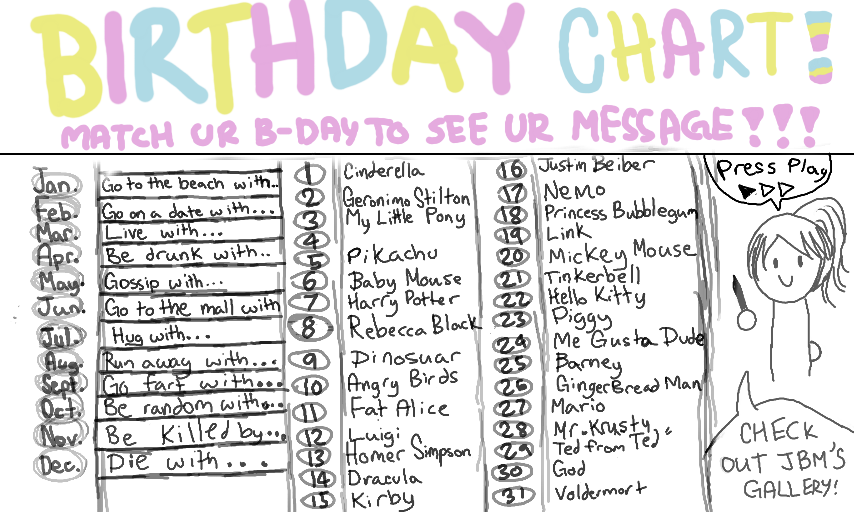 BIRTHDAY CHART!
MATCH UR B-DAY TO SEE UR MESSAGE!!!
Jan. Go to the beach with..
Feb. Go on a date with...
Mar. Live with...
Apr. Be drunk with..
May. Gossip with...
Jun. Go to the mall with
Jul. Hug with...
Aug. Run away with...
Sept. Go farf with...
Oct. Be random with...
Nov. Be Killed by...
Dec. Die with...
1 Cinderella
2 Geronimo Stilton
3 My Little Pony
4
5 Pikachu
6 Baby Mouse
7 Harry Potter
8 Rebecca Black
9 Dinosuar
10 Angry Birds
11 Fat Alice
12 Luigi
13 Homer Simpson
14 Dracula
15 Kirby
16 Justin Beiber
17 Nemo
18 Princess Bubblegum
19 Link
20 Mickey Mouse
21 Tinkerbell
22 Hello Kitty
23 Piggy
24 Me Gusta Dude
25 Barney
26 GingerBread Man
27 Mario
28 Mr. Krusty
29 Ted from "Ted"
30 God
31 Voldermort
Press Play
CHECK
OUT JBM'S
GALLERY!